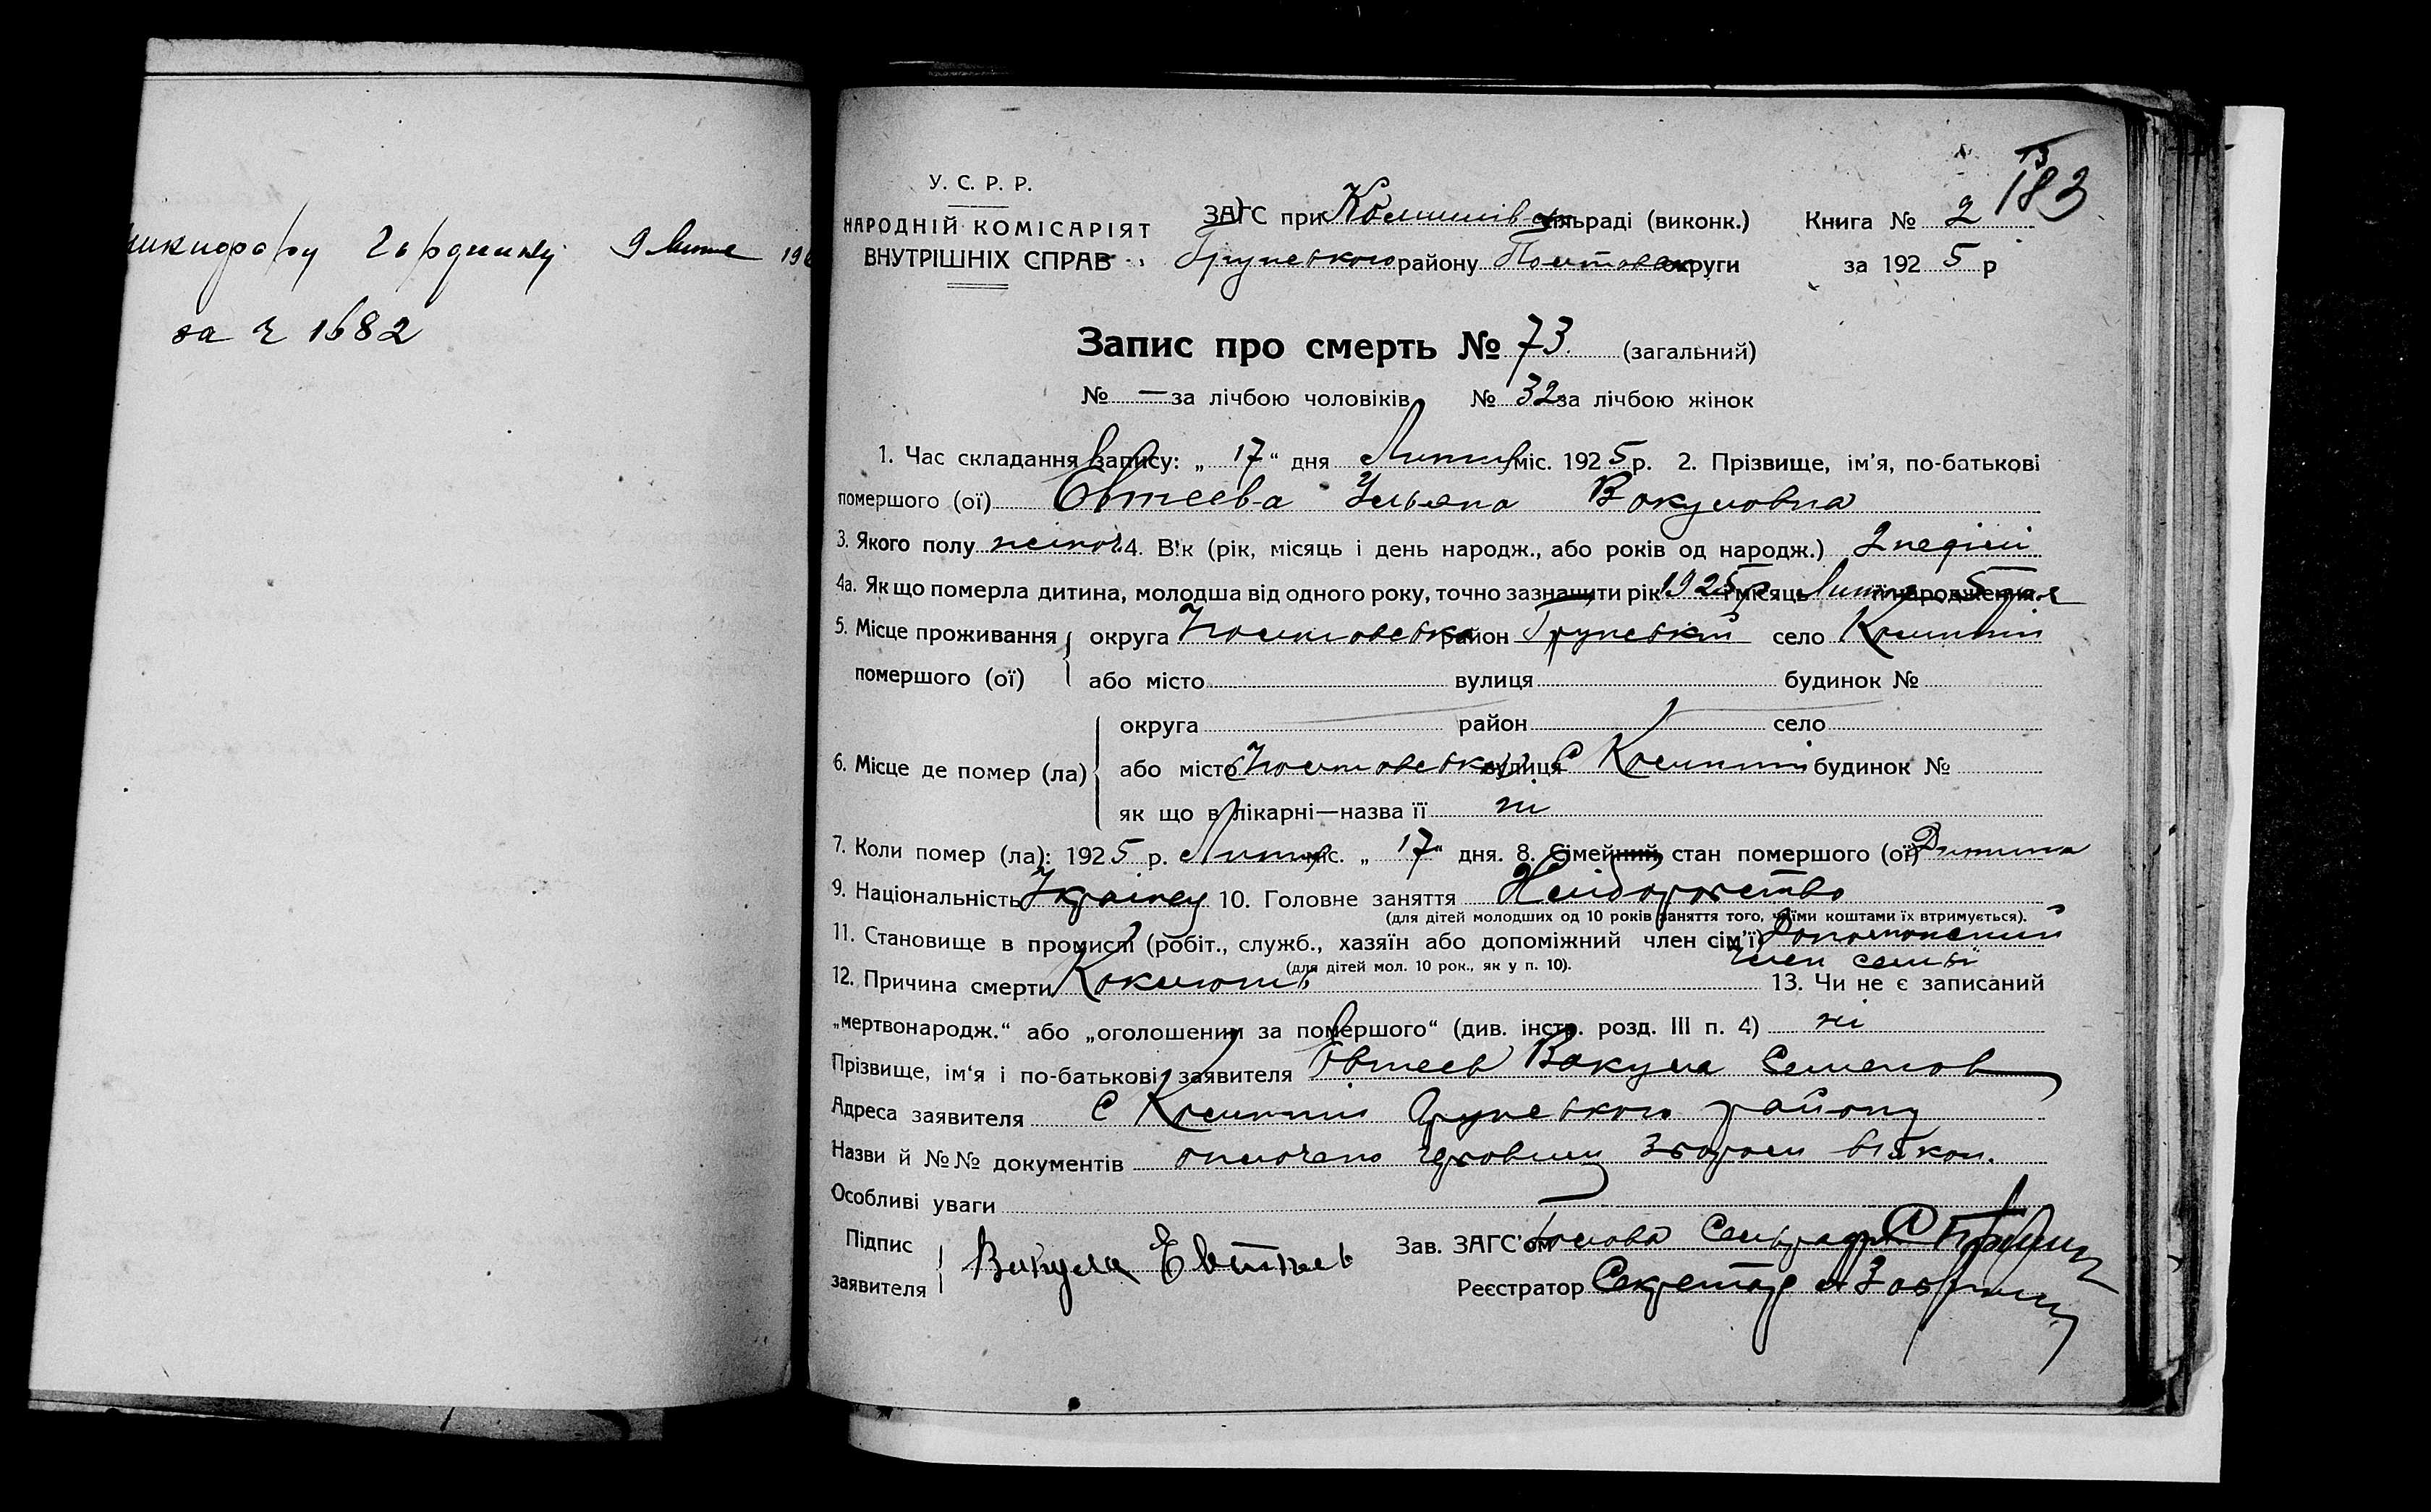 Гордиенку 9
за № 1682
183
У. С. Р. Р.
НАРОДНІЙ КОМІСАРІЯТ
ВНУТРІШНІХ СПРАВ
ЗАГС при сільраді (виконк.) Книга № 2
Грунського району Полтавськ округи за 1925 р
Запис про смерть № 73. (загальний)
№ — за лічбою чоловіків № 32 за лічбою жінок
1. Час складання запису: „ 17 “ дня Лютня міс. 1925 р. 2. Прізвище, ім’я, по-батькові
помершого (ої) Євтеева Ульяна Вакуловна
3. Якого полу жіноч. 4. Вік (рік, місяць і день народж., або років од народж.) 2 неділі
4а. Як що померла дитина, молодша від одного року, точно зазначити рік 1925 р і місяць її народження
5. Місце проживання помершого (ої) округа Полтавська район Грунський село
або місто вулиця будинок №
6. Місце де помер (ла) округа район село
або місто Полтавська вулиця с будинок №
як що в лікарні—назва її ні
7. Коли помер (ла): 1925 р. Лютня міс. „ 17 “ дня. 8. Сімейний стан помершого (ої) Дитина
9. Національність Українка 10. Головне заняття Хліборобство
(для дітей молодших од 10 років заняття того, чиїми коштами їх втримується).
11. Становище в промислі (робіт., служб., хазяїн або допоміжний член сім’ї) Допоможений
член семьі
(для дітей мол. 10 рок., як у п. 10).
12. Причина смерти Коклюшь 13. Чи не є записаний
„мертвонародж.“ або „оголошеним за помершого“ (див. інстр. розд. III п. 4) ні
Прізвище, ім‘я і по-батькові заявителя Євтеев Вакула Семенов
Адреса заявителя С Грунського району
Назви й №№ документів оплочено
Особливі уваги
Підпис заявителя Вакула Евтеев
Зав. ЗАГС’ом Голова Сельради
Реєстратор Секретар